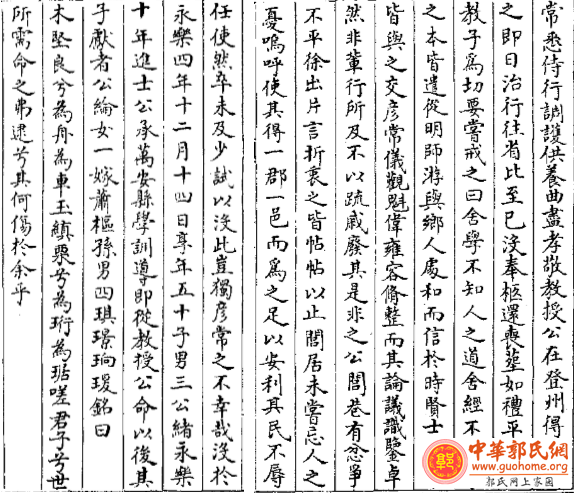 常悉侍行調護供養曲盡孝敬教授公在登州得
之即日治行往省比至已沒奉柩還喪塟如禮平
教子爲切要嘗戒之曰舍學不知人之道舍經不
之本皆遣從明師游與鄉人處和而信於時賢士
皆與之交彥常儀觀魁偉雍容脩整而其論議識鑒卓
然非輩行所及不以踈戚廢其是非之公閭巷有忿爭
不平徐出片言折衷之皆帖帖以止閒居未嘗忘人之
憂嗚呼使其得一郡一邑而爲之足以安利其民不辱
任使然卒未及少試以沒此豈獨彥常之不幸哉沒於
永樂四年十二月十四日享年五十子男三公緒永樂
十年進士公承萬安縣學訓導即從教授公命以後其
子獻者公綸女一嫁蕭樞孫男四琪璟珦瑗銘曰
木堅良兮為舟為車玉縝栗兮為珩為琚嗟君子兮世
所需命之弗逮兮其何傷於余乎
中華郭氏网
www.guohome.org
郭氏网上家園